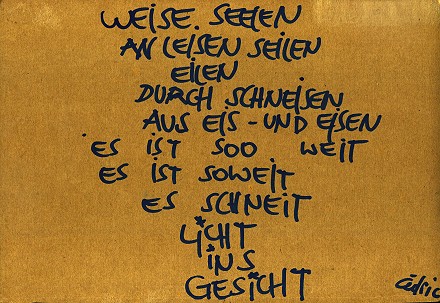 WEISE SEELEN
AN LEISEN SEILEN
EILEN
DURCH SCHNEISEN
AUS EIS - UND EISEN
ES IST SOO WEIT
ES IST SOWEIT
ES SCHNEIT
LICHT
INS
GESICHT